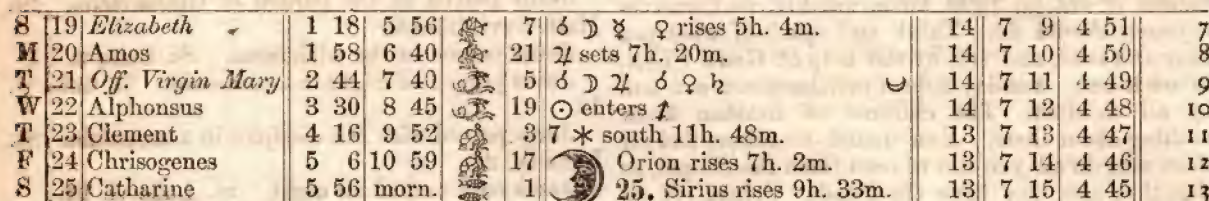 S 19 Elizabeth 1 18 5 56 7 ☌ ☽ ☿ ♀ rises 5h. 4m. 14 7 9 4 51 7
M 20 Amos 1 58 6 40 21 ♃ sets 7h. 20m. 14 7 10 4 50 8
T 21 Off. Virgin Mary 2 44 7 40 5 ☌ ☽ ♃ ☌ ♀ ♄ 14 7 11 4 49 9
W 22 Alphonsus 3 30 8 45 19 ☉ enters ♐ 14 7 12 4 48 10
T 23 Clement 4 16 9 52 3 7 ✶ south 11h. 48m. 13 7 13 4 47 11
F 24 Chrisogenes 5 6 10 59 17 Orion rises 7h. 2m. 13 7 14 4 46 12
S 25 Catharine 5 56 morn. 1 25. Sirius rises 9h. 33m. 13 7 15 4 45 13